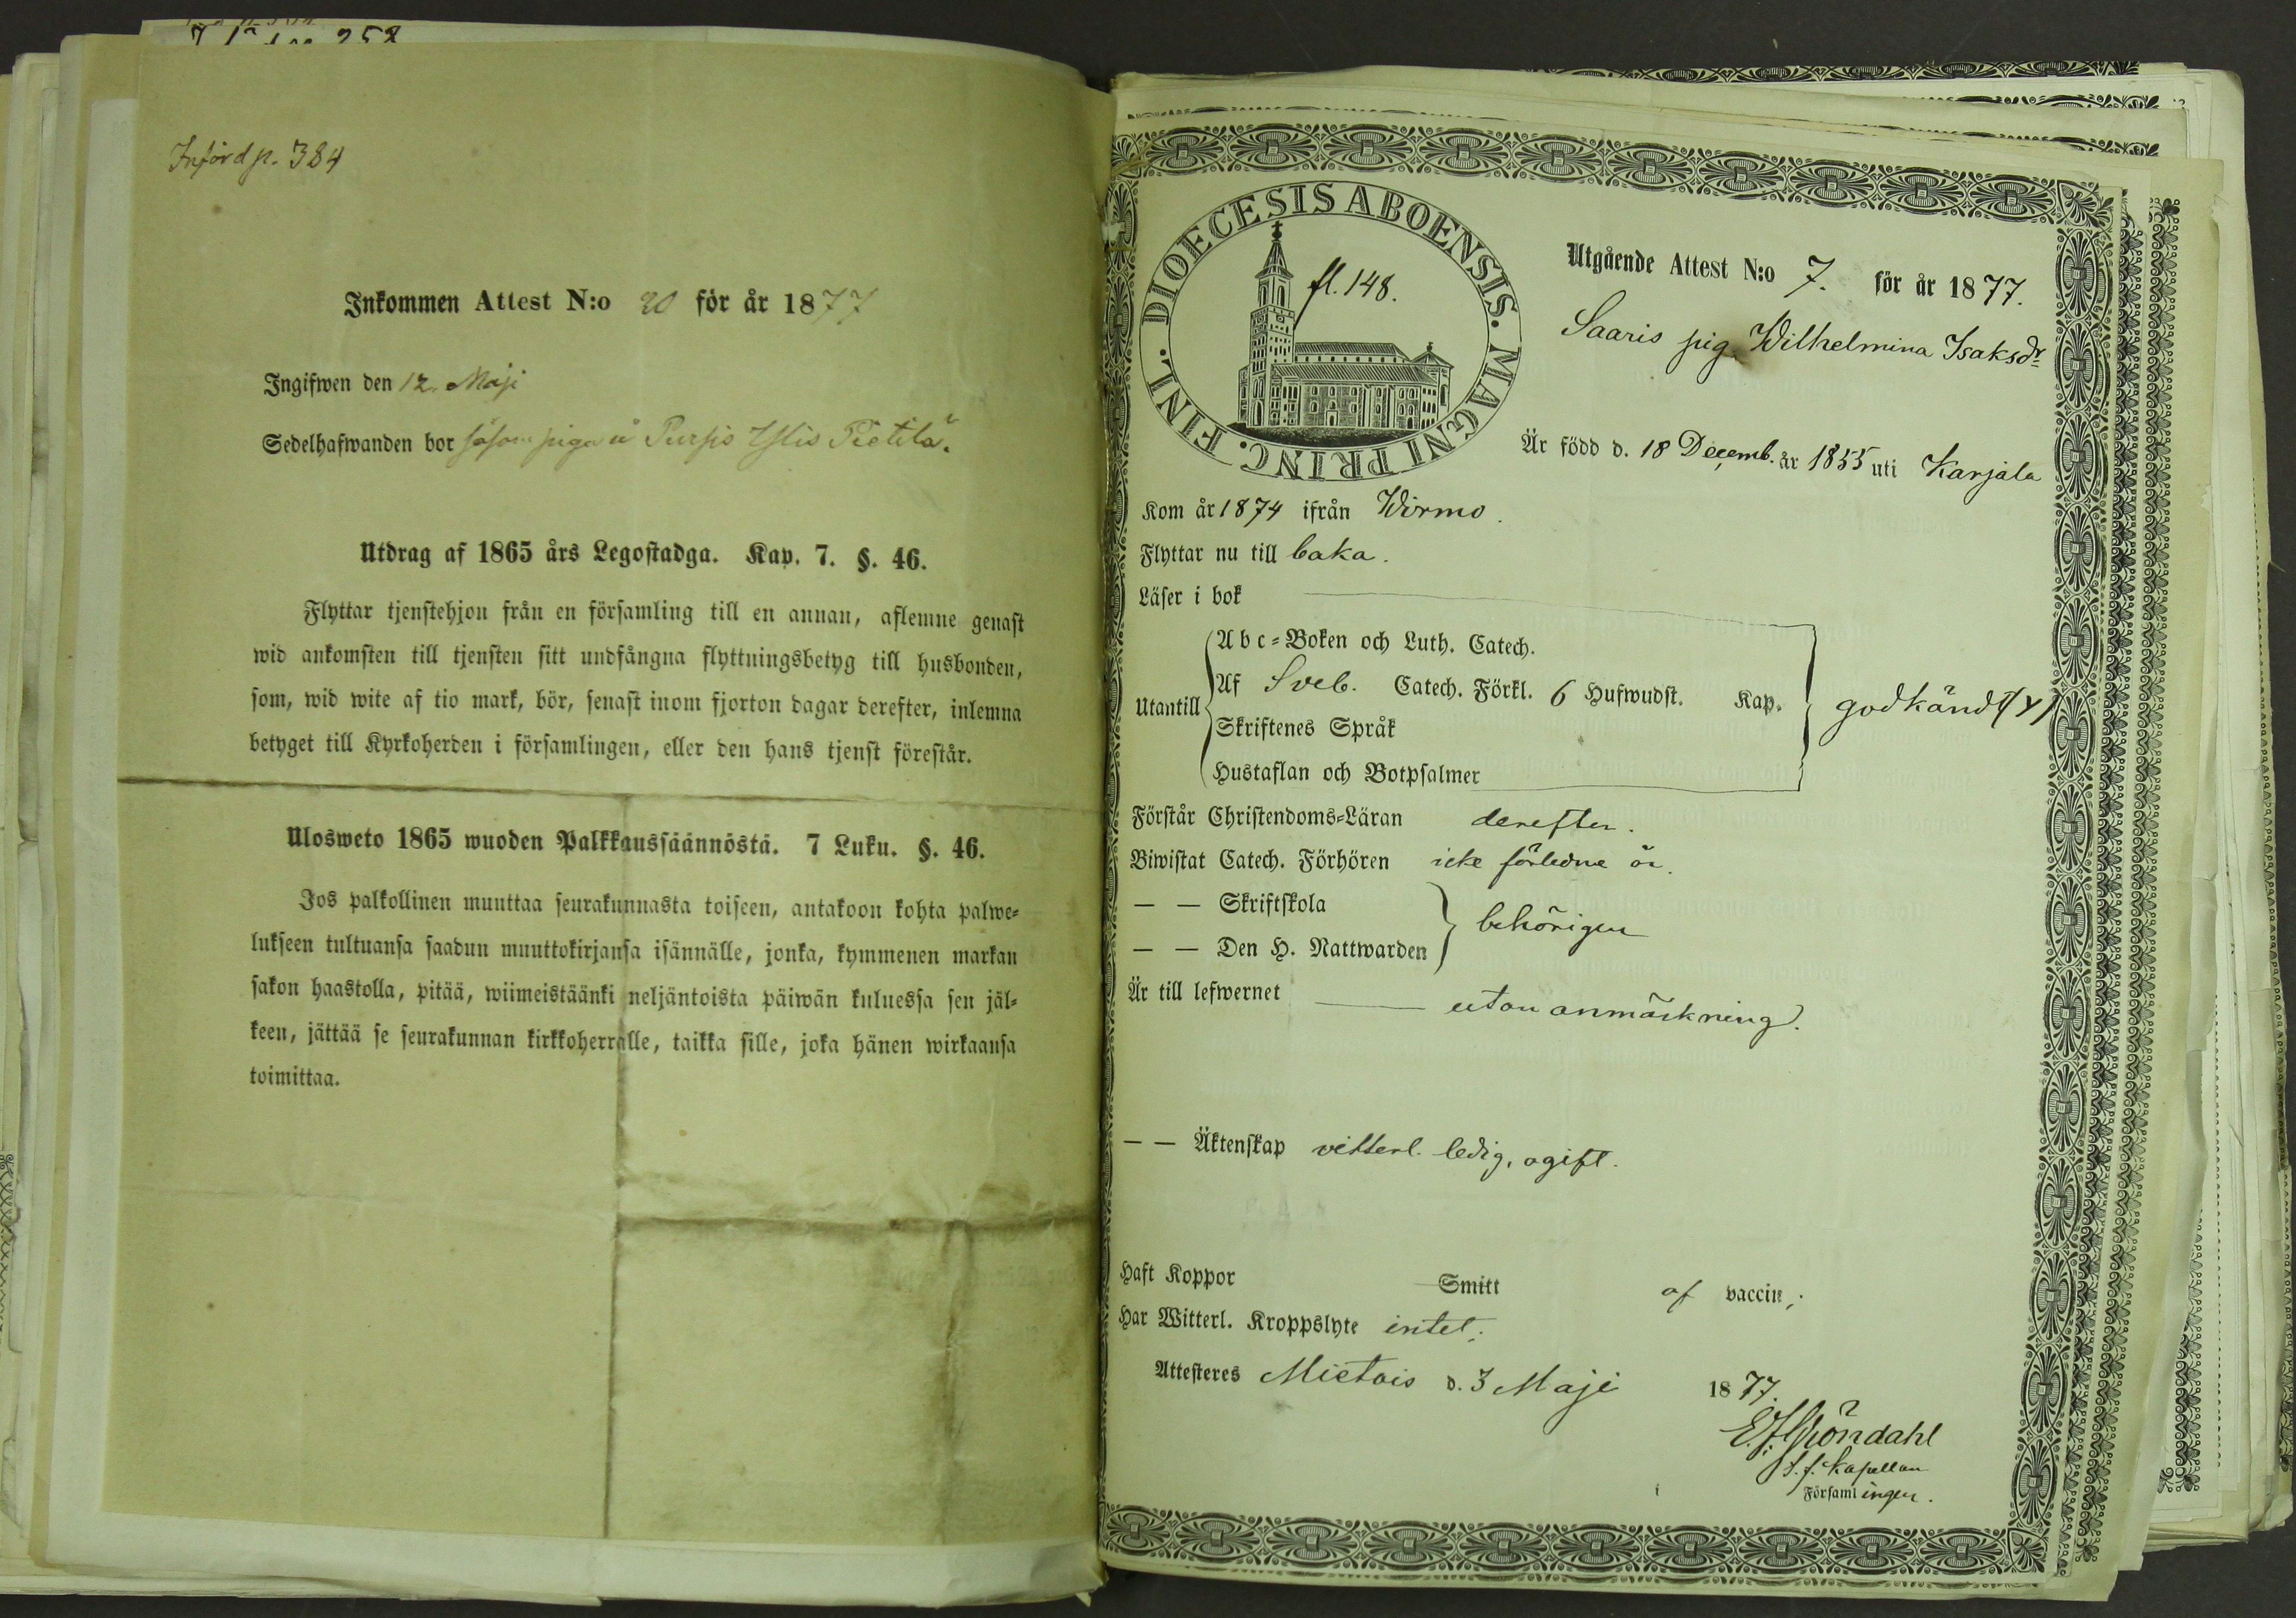 Införd p. 384
Inkommen Attest N:o 20 för år 1877
Ingifwen den 12. Maji
Sedelhafwanden bor såsom piga å Purpis Ylis Pietilä.
Utdrag af 1865 års Legostadga. Kap. 7. §. 46.
Flyttar tjenstehjon från en församling till en annan, aflemne genast
wid ankomsten till tjensten sitt undfångna flyttningsbetyg till husbonden,
som, wid wite af tio mark, bör, senast inom fjorton dagar derefter, inlemna
betyget till Kyrkoherden i församlingen, eller den hans tjenst förestår.
Ulosweto 1865 wuoden Palkkaussäännöstä. 7 Luku. §. 46.
Jos palkollinen muuttaa seurakunnasta toiseen, antakoon kohta palwe-
lukseen tultuansa saadun muuttokirjansa isännälle, jonka, kymmenen markan
sakon haastolla, pitää, wiimeistäänki neljäntoista päiwän kuluessa sen jäl-
keen, jättää se seurakunnan kirkkoherralle, taikka sille, joka hänen wirkaansa
toimittaa.
DIOECESIS ABOENSIS. MAGNI PRINC. FINL.
fl. 148.
Utgående Attest N:o 7. för år 1877.
Saaris pig. Wilhelmina Isaksdr
Är född d. 18 Decemb. år 1855 uti Karjala
Kom år 1874 ifrån Wirmo.
Flyttar nu till baka.
Läser i bok
Utantill
Abc-Boken och Luth. Catech.
Af Sveb. Catech. Förkl. 6 Hufwudst. Kap.
Skriftenes Språk
Hustaflan och Botpsalmer
godkändt (y)
Förstår Christendoms-Läran derefter.
Biwistat Catech. Förhören icke förledne år.
— — Skriftskola
— — Den H. Nattwarden
behörigen
Är till lefwernet utan anmärkning.
— — Äktenskap vitterl. ledig, ogift.
Haft Koppor Smitt af vaccin;
Har Witterl. Kroppslyte intet;
Attesteres Mietois d. 3 Maji 1877.
t. f. Kapellan
i Församlingen.